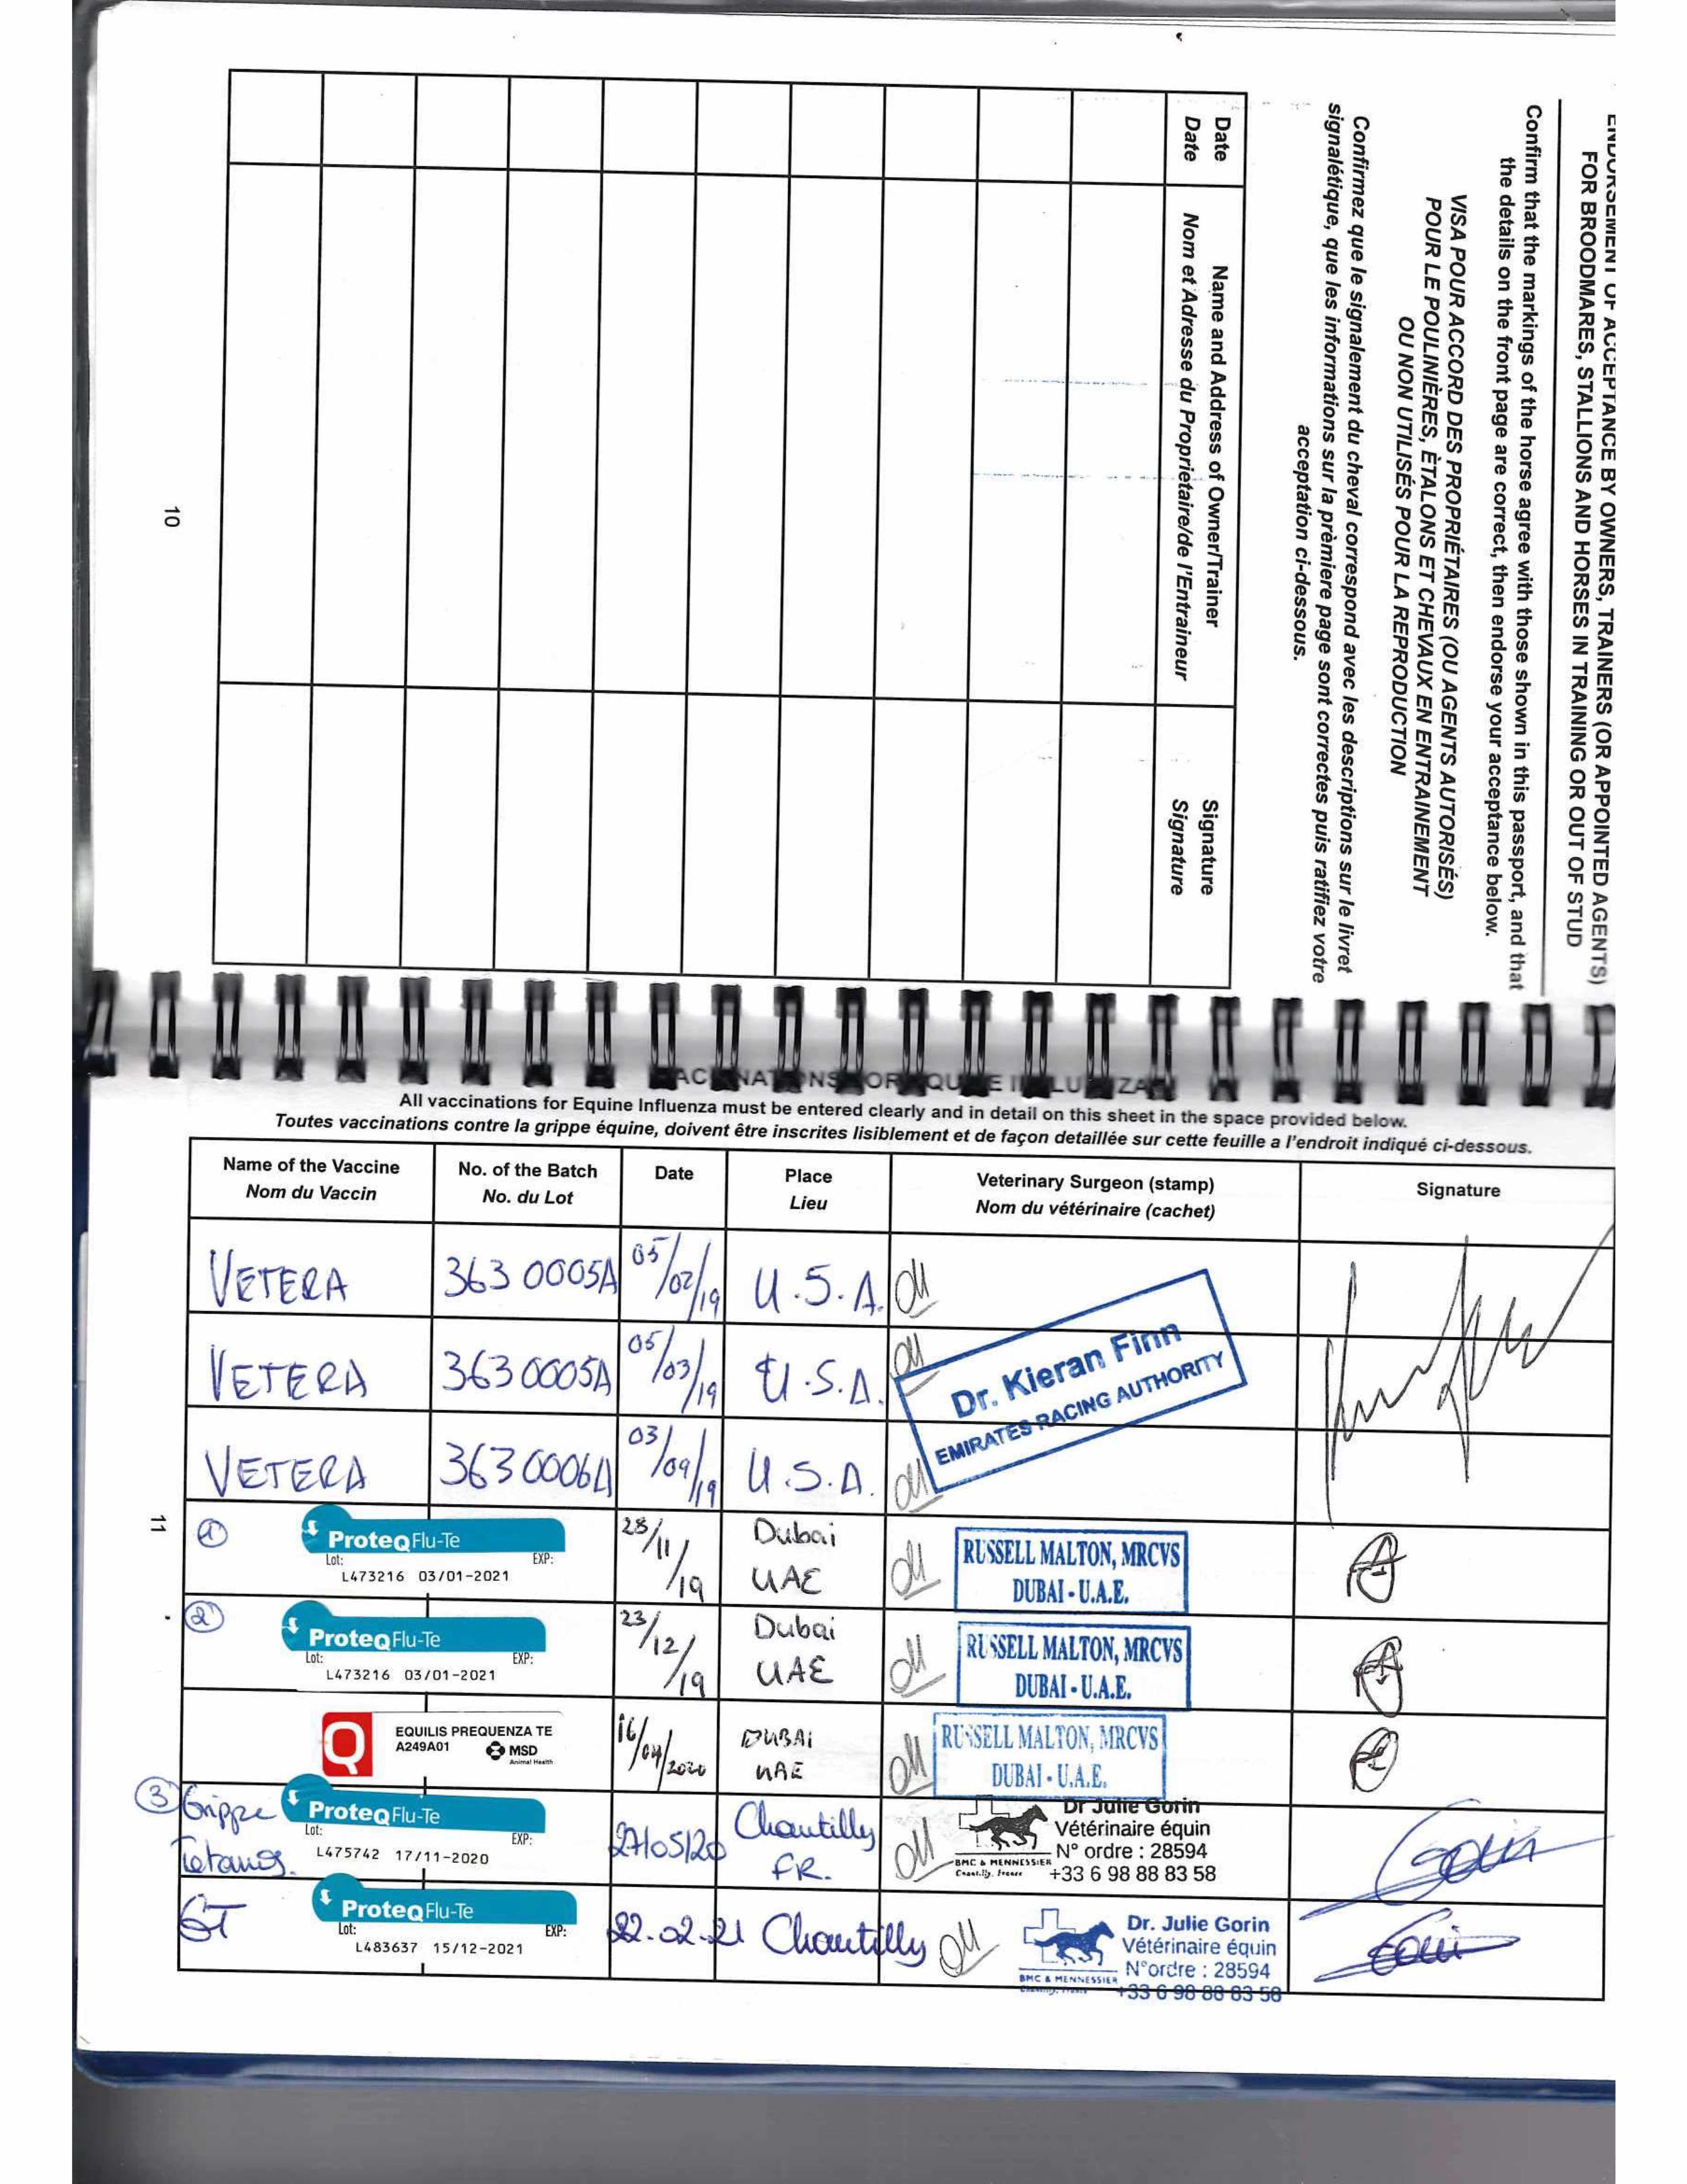 ENDORSEMENT OF ACCEPTANCE BY OWNERS, TRAINERS (OR APPOINTED AGENTS)
FOR BROODMARES, STALLIONS AND HORSES IN TRAINING OR OUT OF STUD
Confirm that the markings of the horse agree with those shown in this passport, and that
the details on the front page are correct, then endorse your acceptance below.
VISA POUR ACCORD DES PROPRIÉTAIRES (OU AGENTS AUTORISÉS)
POUR LE POULINIÈRES, ÈTALONS ET CHEVAUX EN ENTRAINEMENT
OU NON UTILISÉS POUR LA REPRODUCTION
Confirmez que le signalement du cheval correspond avec les descriptions sur le livret
signalétique, que les informations sur la prèmiere page sont correctes puis ratifiez votre
acceptation ci-dessous.
Date Name and Address of Owner/Trainer Signature
Date Nom et Adresse du Proprietaire/de l'Entraineur Signature
10
VACCINATIONS FOR EQUINE INFLUENZA
All vaccinations for Equine Influenza must be entered clearly and in detail on this sheet in the space provided below.
Toutes vaccinations contre la grippe équine, doivent être inscrites lisiblement et de façon detaillée sur cette feuille a l'endroit indiqué ci-dessous.
Name of the Vaccine No. of the Batch Date Place Veterinary Surgeon (stamp) Signature
Nom du Vaccin No. du Lot Lieu Nom du vétérinaire (cachet)
VETERA 363 0005A 05/02/19 U.S.A.
VETERA 3630005A 05/03/19 U.S.A.
Dr. Kieran Finn
EMIRATES RACING AUTHORITY
VETERA 3630006A 03/09/19 U.S.A.
11
1 ProteqFlu-Te 28/11/19 Dubai UAE RUSSELL MALTON, MRCVS
Lot: EXP: DUBAI - U.A.E.
L473216 03/01-2021
2 ProteqFlu-Te 23/12/19 Dubai UAE RUSSELL MALTON, MRCVS
Lot: EXP: DUBAI - U.A.E.
L473216 03/01-2021
EQUILIS PREQUENZA TE 16/04/2020 DUBAI UAE RUSSELL MALTON, MRCVS
A249A01 MSD DUBAI - U.A.E.
Animal Health
3 Grippe Tetanos. ProteqFlu-Te 27/05/20 Chantilly FR. Dr Julie Gorin
Lot: EXP: Vétérinaire équin
L475742 17/11-2020 N° ordre : 28594
BMC & MENNESSIER +33 6 98 88 83 58
Chantilly, France
GT ProteqFlu-Te 22.02.21 Chantilly Dr. Julie Gorin
Lot: EXP: Vétérinaire équin
L483637 15/12-2021 N°ordre : 28594
BMC & MENNESSIER +33 6 98 88 83 58
Chantilly, France